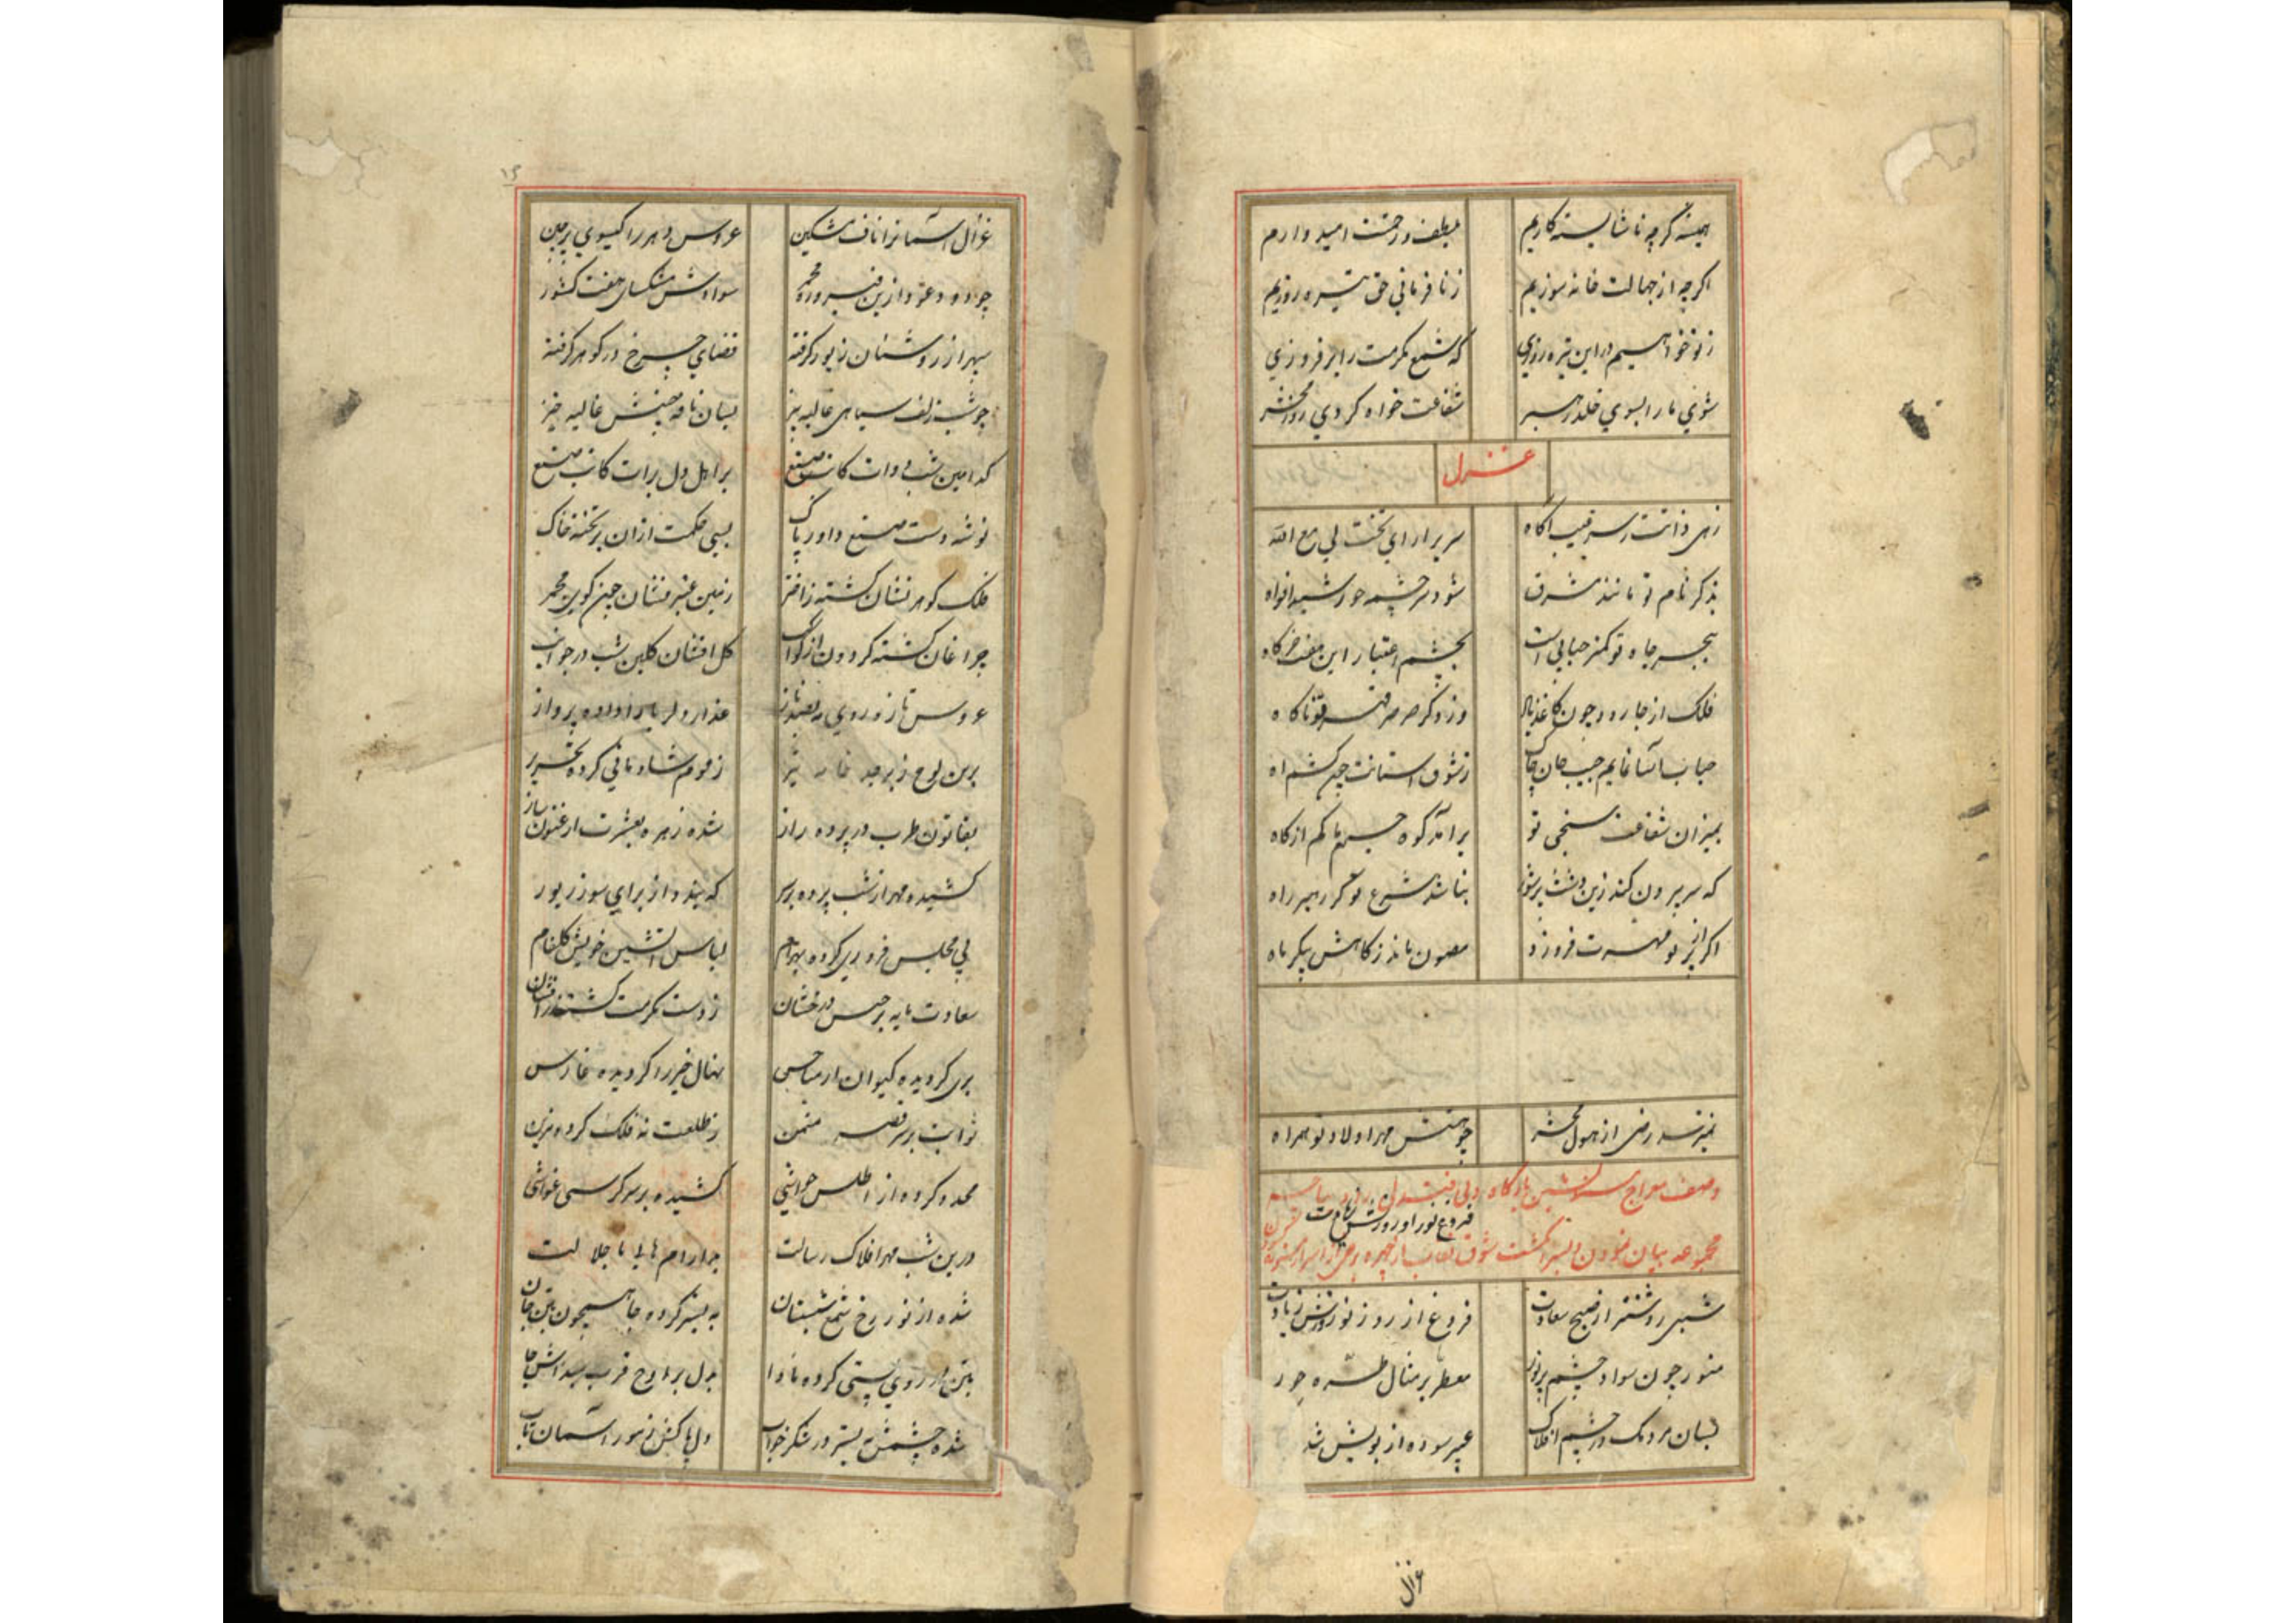 همیشه گرچه ناشایسته کاریم بلطف و رحمتت امید وارم
اکرچه از جهالت خانه سوزیم ز نا فرمانی حق تیره روزیم
ز تو خواهیم در این تیره روزی که شمع مکرمت را بر فروزی
شوی ما را بسوی خلد رهبر شفاعت خواه کردی روز محشر
غزل
زهی ذاتت ز سر غیب آکاه سریر ارای تخت لی مع الله
بذکر نام تو مانند مشرق شود سرچشمه خورشید افواه
ببحر جاه تو کمتر حبابی است بچشم اعتبار این هفت خرکاه
فلک از جا رود چون کاغذ باد وزد کر صرصر قهر تو ناکاه
حباب آسا نمایم جیب جان چاک ز شوق استانت چون کشم اه
بمیزان شفاعت سنجی تو برآمد کوه جرم ما کم از کاه
که سر بیرون کند زین دشت پرشور نباشد شرع تو کر رهبر راه
اکر از پرتو مهرت فروزد مصون ماند ز کاهش پیکر ماه
نترسد رضی از هول محشر چو هستش مهر اولاد تو همراه
وصف معراج بارکاه
فروغ نور او روزش زیادت
مجموعه بیان نمودن و بسر انکشت شوق نقاب از چهره
شبی روشنتر از صبح سعادت فروغ از روز نوروزش زیادت
منور چون سواد چشم پرنور معطر بر مثال طره حور
بسان مردمک در چشم افلاک عبیر سوده از بویش شد
غزال
۱۵
غزال آسمانرا ناف مشکین عروس دهر را کیسوی پرچین
سوادش مشکسای هفت کشور
سپهر از روشنان زیور کرفته فضای چرخ در کوهر کرفته
چو شب زلف سیاهی غالیه بیز بسان نافه جنبش غالیه خیز
کدامین شب دوات کاتب صنع بر اهل دل برات کاتب صنع
نوشه دست صنع داور پاک بسی حکمت ازان بر تخته خاک
فلک کوهر فشان کشته ز اختر زمین عنبر فشان چون کوی مجمر
چراغان کشته کردون از کواکب کل افشان کلبن شب در جوانب
عروس تازه روی مه بصد ناز عذار دلربا را داده پرواز
برین لوح زبرجد ز موم شادمانی کرده تحریر
بقانون طرب در پرده راز شده زهره بعشرت ارغنون ساز
کشیده مهر از شب پرده بر سر که بندد از برای سوز زیور
پی مجلس فروزی کرده بهرام لباس آتشین خویش کلفام
سعادت مایه برجیس درخشان ز دست مکرمت کشته زر افشان
بری کردیده کیوان از مناحس نهال خیر را کردیده غارس
ثوابت بر سر قصر مثمن ز طلعت نه فلک کرده مزین
محدد کرده از اطلس حواشی کشیده بر سر کرسی غواشی
درین شب مهر افلاک رسالت بر ارام با جلالت
شده از نور رخ شمع شبستان به بستر کرده جا همچون بتن جان
بتن بر روی پستی کرده ماوا بدل بر اوج قرب جا
شده چشمش به بستر در شکر خواب دل پاکش ز نور آسمان تاب